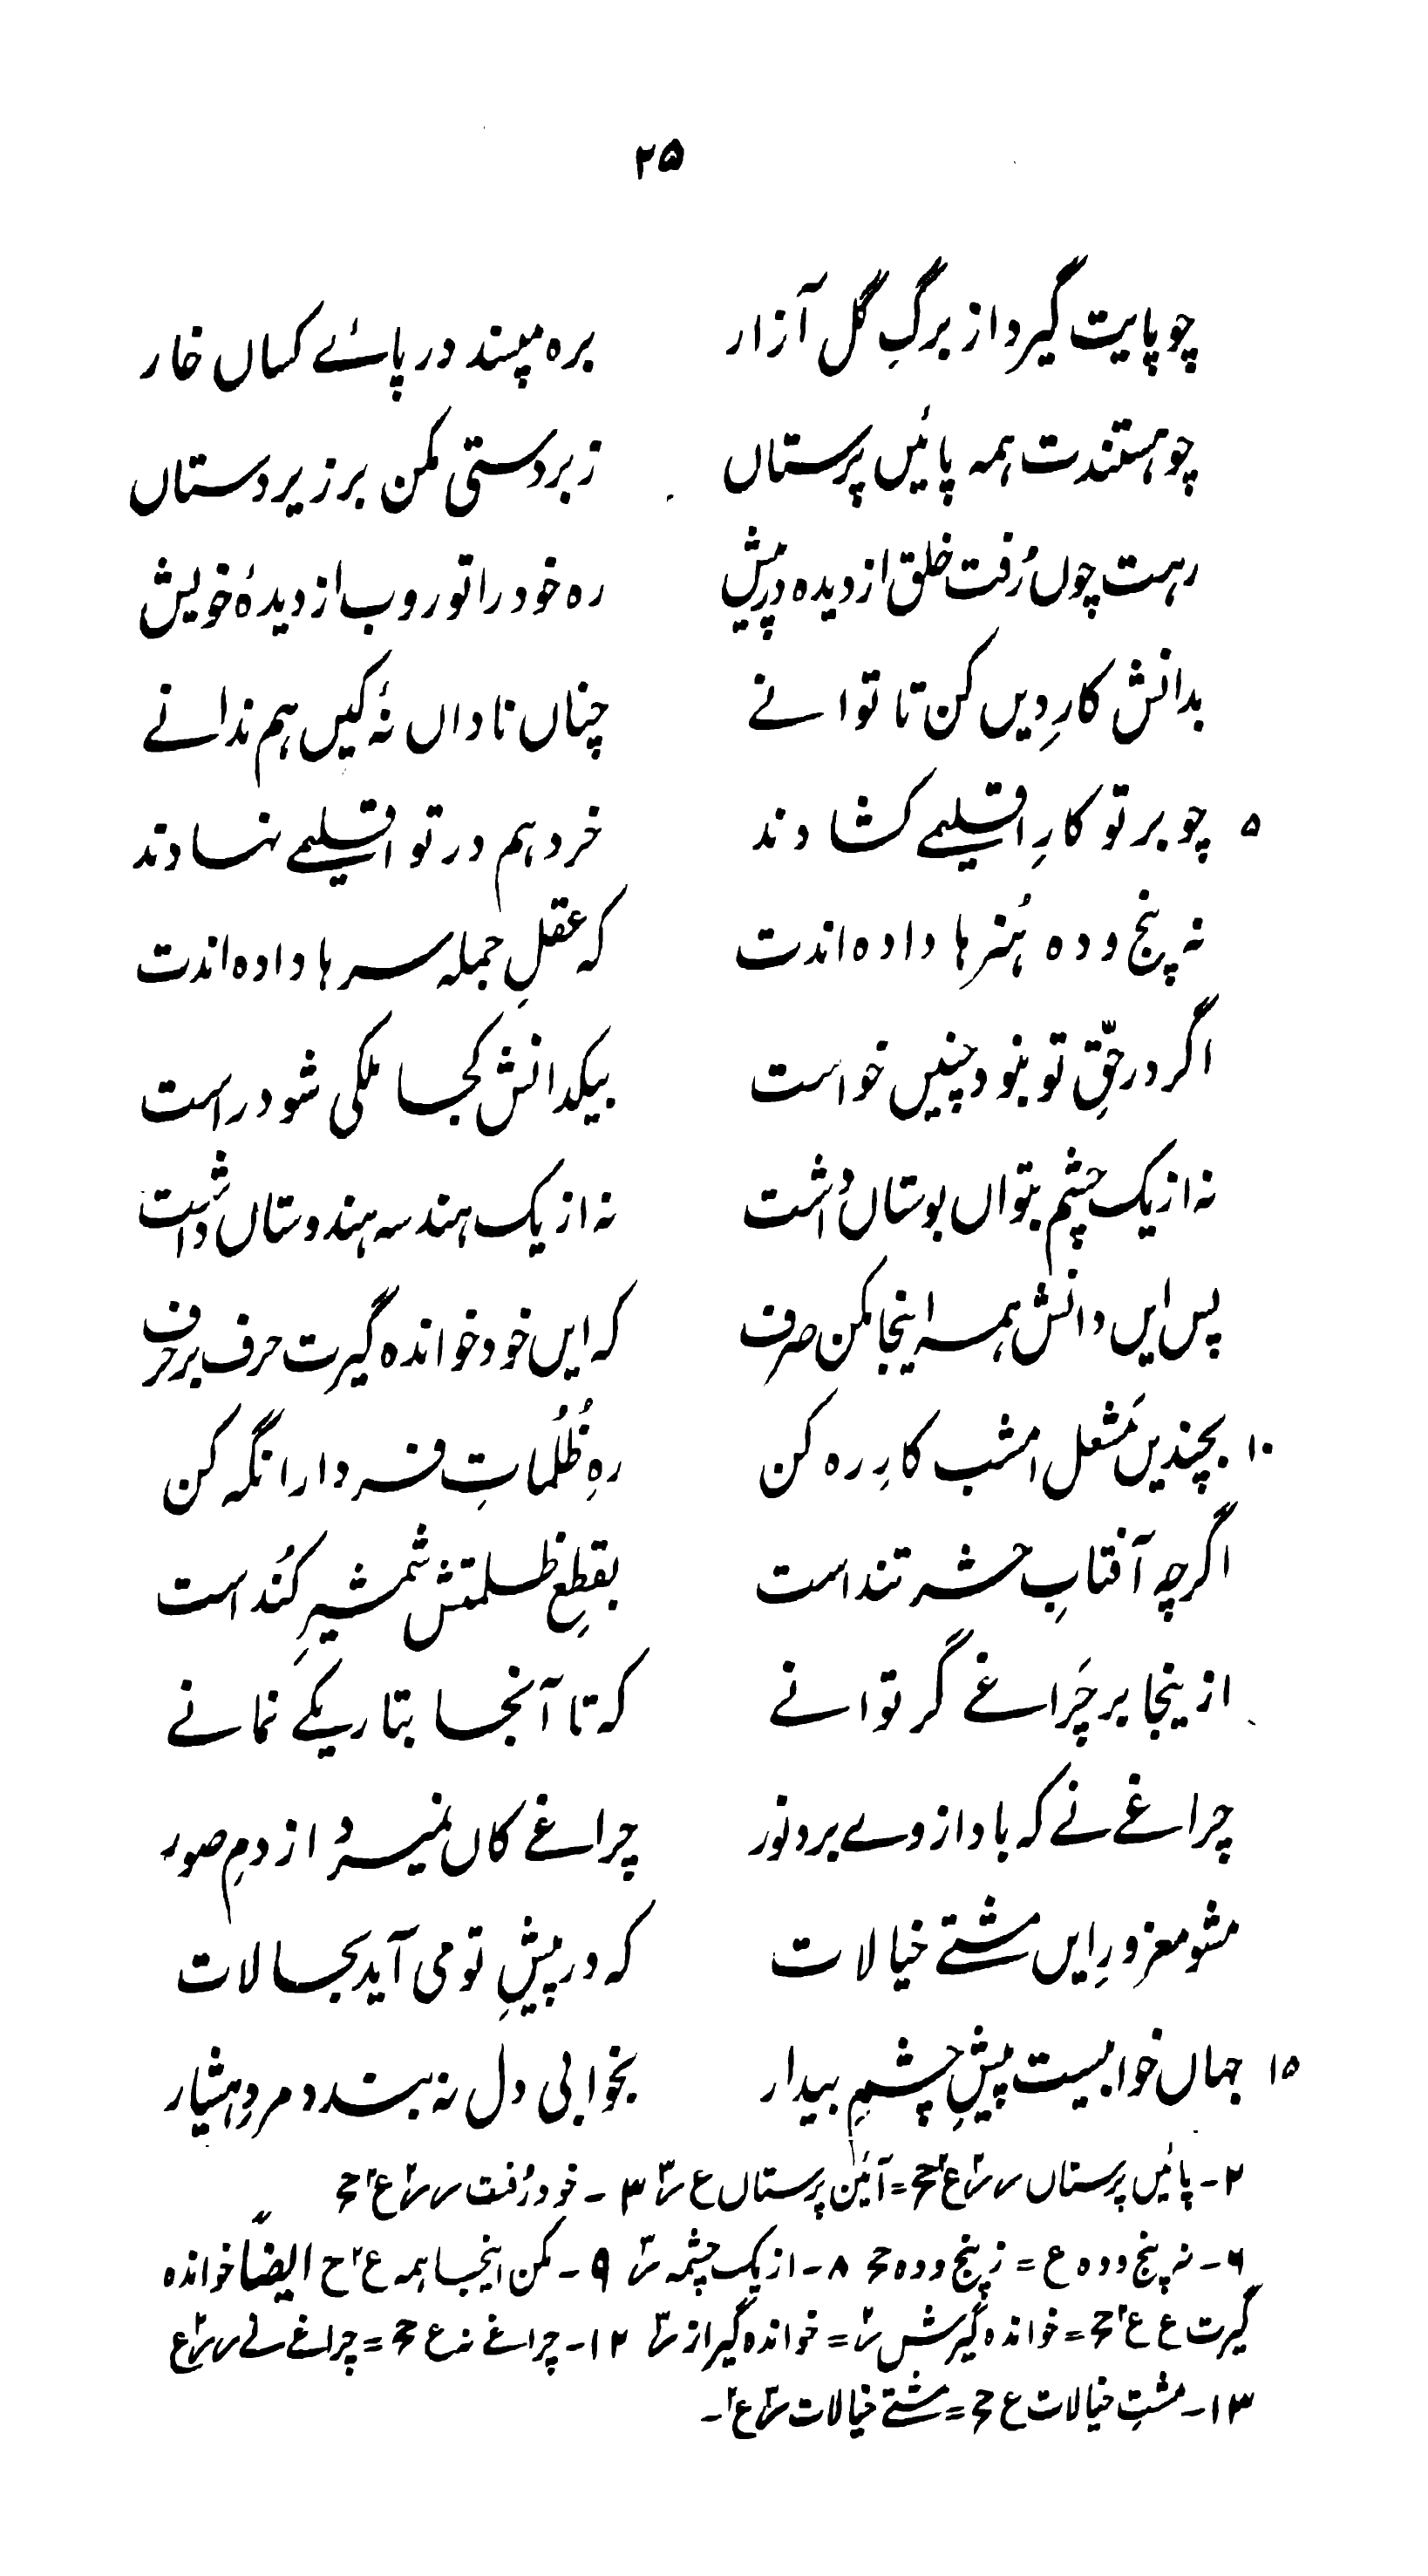 ۲۵
چو پایت گیرد از برگِ گل آزار بره مپسند در پائے کساں خار
چو ہستندت ہمہ پائیں پرستاں زبردستی مکن بر زیردستاں
رہت چوں رُفت خلق از دیدہ در پیش رہ خود را تو روب از دیدۂ خویش
بدانش کارِ دیں کن تا توانے چناں ناداں نۂ کیں ہم ندانے
۵ چو بر تو کارِ اقلیمے کشادند خرد ہم در تو اقلیمے نہادند
نہ پنج و دہ ہُنرہا دادہ اندت کہ عقلِ جملہ سرہا دادہ اندت
اگر در حقِّ تو نبود چنیں خواست بیکدانش کجا ملکی شود راست
نہ از یک چشم بتواں بوستاں داشت نہ از یک ہندسہ ہندوستاں داشت
پس ایں دانش ہمہ اینجا مکن صرف کہ ایں خود خواندہ گیرت حرف بر حرف
۱۰ بچندیں مَشعل امشب کارِ رہ کن رہِ ظُلُماتِ فردا را نگہ کن
اگرچہ آفتابِ حشر تند است بقطعِ ظلمتش شمشیرِ کُند است
ازینجا بر چَراغے گر توانے کہ تا آنجا بتاریکے نمانے
چراغے نے کہ باد از وے برد نور چراغے کاں نمیرد از دمِ صور
مشو مغرورِ ایں مشتے خیالات کہ در پیشِ تو می آید بحالات
۱۵ جہاں خوابیست پیشِ چشمِ بیدار بخوابی دل نہ بندد مردِ ہشیار
۲- پائیں پرستاں = آئین پرستاں ع ۳- خود رُفت
۶- نہ پنج و دہ ع = ز پنج و دہ ۸- از یک چشمہ ۹- مکن اینجا ہمہ ع۲ ح ایضاً خواندہ
گیرت ع ع۲ = خواندہ گیرش = خواندہ گیر از ۱۲- چراغے نہ ع = چراغے نے
۱۳- مشتِ خیالات ع = مشتے خیالات ع۲-